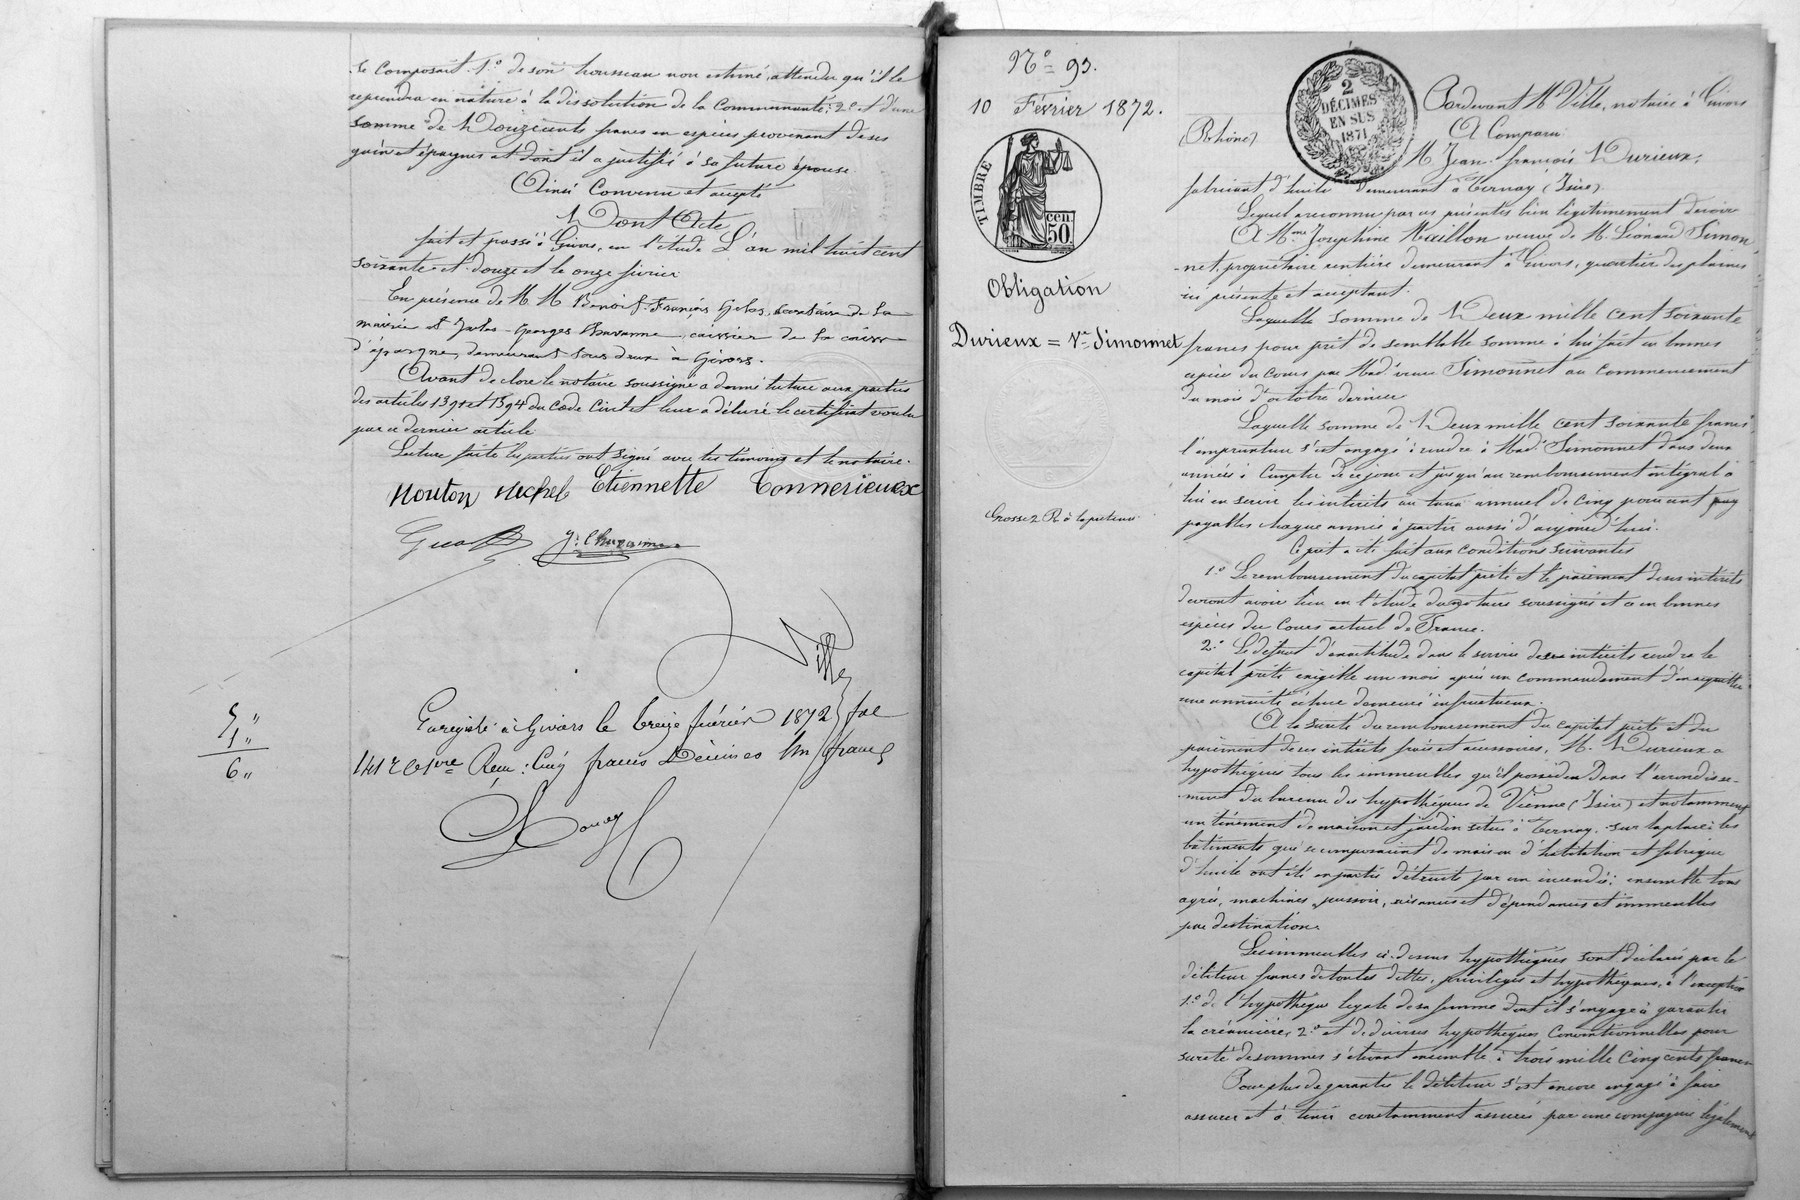 se composait 1.º de son trousseau non estimé, attendu qu'il le
reprendra en nature à la dissolution de la communauté; 2.º et d'une
somme de Douze cents francs en espèces provenant de ses
gains et épargnes et dont il a justifié à sa future épouse.
Ainsi Convenu et accepté
Dont Acte
fait et passé à Givors, en l'étude L'an mil huit cent
soixante et douze et le onze février
En présence de M. M Benoit-François secrétaire de la
mairie et Jules-Georges Chavanne, caissier de la caisse
d'épargne, demeurant tous deux à Givors.
Avant de clore le notaire soussigné a donné lecture aux parties
des articles 1391 et 1394 du Code Civil et leur a délivré le certificat voulu
par ce dernier article
Lecture faite les parties ont signé avec les témoins et le notaire.
Mouton Michel Etiennette Tonnerieux
Ville
Enregistré à Givors le treize février 1872 fol
141 Rº Cse 1ère Reçu: Cinq francs Décimes Un franc
5 "
1 "
6 "
Nº 93.
10 Février 1872.
TIMBRE
cen.
50
2
DÉCIMES
EN SUS
1871
Obligation
Durieux = Vve Simonnet
Pardevant Me Ville, notaire à Givors
(Rhône)
A Comparu:
M. Jean-françois Durieux,
fabricant d'huile demeurant à Ternay (Isère).
Lequel a reconnu par ces présentes bien légitimement devoir
A Mme Josephine Maillon veuve de M. Léonard Simon
-net, propriétaire rentière demeurant à Givors, quartier des plaines
ici présente et acceptant.
Laquelle somme de Deux mille cent soixante
francs pour prêt de semblable somme à lui fait en bonnes
espèces du cours par Made veuve Simonnet au commencement
du mois d'octobre dernier
Laquelle somme de Deux mille cent soixante francs
l'emprunteur s'est engagé à rendre à Made Simonnet dans deux
années à Compter de ce jour et jusqu'au remboursement intégral à
lui en servir les intérêts au taux annuel de cinq pour cent
payables chaque année à partir aussi d'aujourd'hui.
Ce prêt a été fait aux conditions suivantes
1.º Le remboursement du capital prêté et le paiement de ses intérêts
devront avoir lieu en l'étude du notaire soussigné et en bonnes
espèces du Cours actuel de France.
2.º Le défaut d'exactitude dans le service des intérêts rendra le
capital prêté exigible un mois après un commandement d'en acquitter
une annuité échue demeuré infructueux.
A la sûreté du remboursement du capital prêté et du
paiement de ses intérêts frais et accessoires, M. Durieux a
hypothéqué tous les immeubles qu'il possède dans l'arrondisse-
ment du bureau des hypothèques de Vienne (Isère) et notamment
un tènement de maison et jardin situé à Ternay, sur la place; les
bâtiments qui se composaient de maison d'habitation et fabrique
d'huile ont été en partie détruits par un incendie; ensemble tous
agrès, machines, pressoir, aisances et dépendances et immeubles
par destination.
Les immeubles ci-dessus hypothéqués sont déclarés par le
débiteur francs de toutes dettes, privilèges et hypothèques, à l'exception
1.º de l'hypothèque légale de sa femme dont il s'engage à garantir
la créancière, 2.º et de diverses hypothèques Conventionnelles pour
sûreté de sommes s'élevant ensemble à trois mille cinq cents francs
Pour plus de garantie le débiteur s'est encore engagé à faire
assurer et à tenir constamment assurés par une compagnie légalement